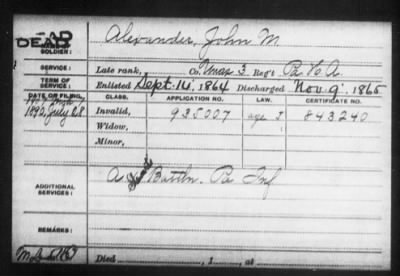 DEAD
DEAD
SOLDIER: Alexander, John M
SERVICE: Late rank, Co. Unas. 3 Reg't Pa. H. A.
TERM OF SERVICE: Enlisted Sept. 14, 1864 Discharged Nov. 9, 1865
DATE OF FILING. CLASS. APPLICATION NO. LAW. CERTIFICATE NO.
1892, July 28 Invalid, 935007 843240
Widow,
Minor,
ADDITIONAL SERVICES: A Battln. Pa Inf
REMARKS:
Died , 1 , at